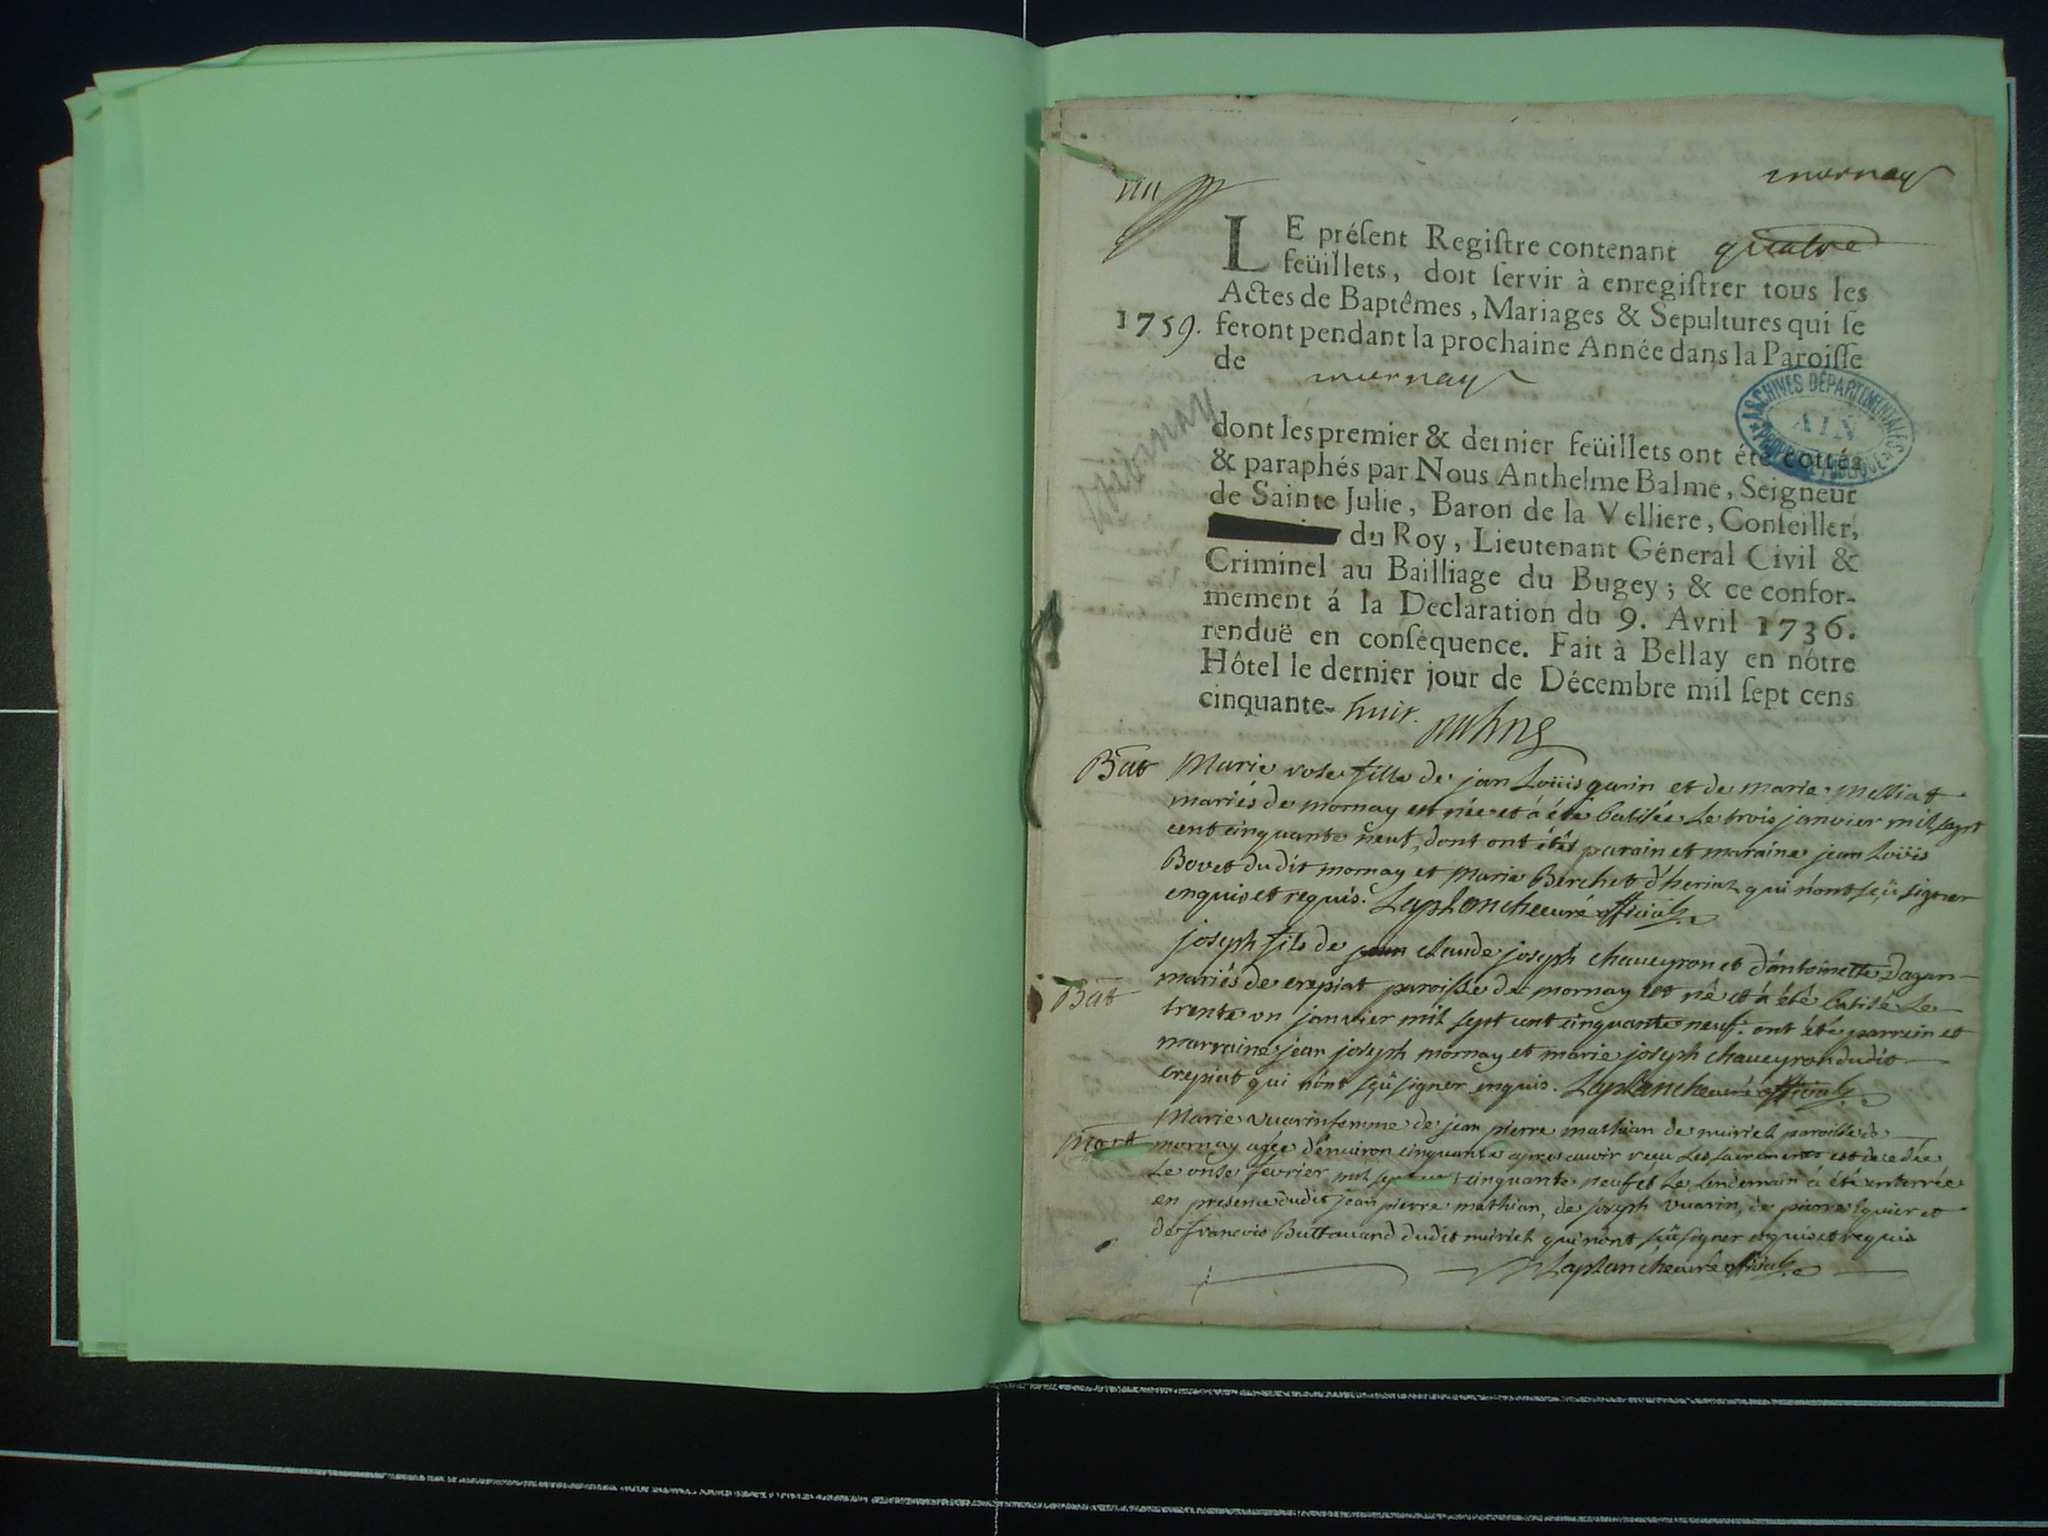 mornay
IIII
LE préſent Regiſtre contenant quatre
feüillets, doit ſervir à enregiſtrer tous les
Actes de Baptêmes, Mariages & Sepultures qui ſe
1759. feront pendant la prochaine Année dans la Paroiſſe
de mornay
ARCHIVES DÉPARTEMENTALES
AIN
Mornay
dont les premier & dernier feüillets ont été cottés
& paraphés par Nous Anthelme Balme, Seigneur
de Sainte Julie, Baron de la Velliere, Conſeiller,
du Roy, Lieutenant Géneral Civil &
Criminel au Bailliage du Bugey; & ce confor-
mement á la Declaration du 9. Avril 1736.
renduë en conſéquence. Fait à Bellay en nôtre
Hôtel le dernier jour de Décembre mil ſept cens
cinquante-huit.
Bat Marie rose fille de jan Loüis garin et de marie melliat
mariés de mornay est née et à été batisée le trois janvier mil sept
cent cinquante neuf, dont ont étés parain et maraine jean Loüis
Bovet dudit mornay et Marie Berchet d'heriat qui n'ont sçü signer
enquis et requis. Laplanche curé official
joseph fils de claude joseph chaveyron et d'antoinette dagan
Bat mariés de crepiat paroisse de mornay est né et à été batisé le
trente un janvier mil sept cent cinquante neuf. ont été parrain et
marraine jean joseph mornay et marie joseph chaveyron dudit
crepiat qui n'ont sçü signer enquis. Laplanche curé official
Marie vuarin femme de jean pierre mathian de muriet paroisse de
Mort mornay agée d'environ cinquante apres avoir reçu les sacrements est decedée
le onse fevrier mil sept cent cinquante neuf et le lendemain à été enterrée
en presence dudit jean pierre mathian, de joseph vuarin, de pierre et
de françois Buttavand dudit muriet qui n'ont sçü signer enquis et requis
Laplanche curé official